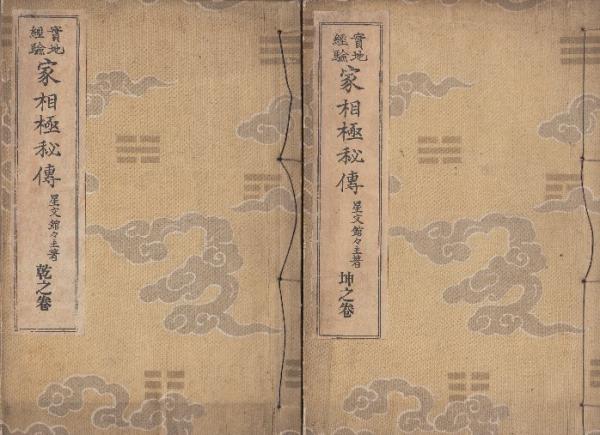 實地
經驗
家相極秘傳
星文舘々主著
乾之卷
實地
經驗
家相極秘傳
星文舘々主著
坤之卷